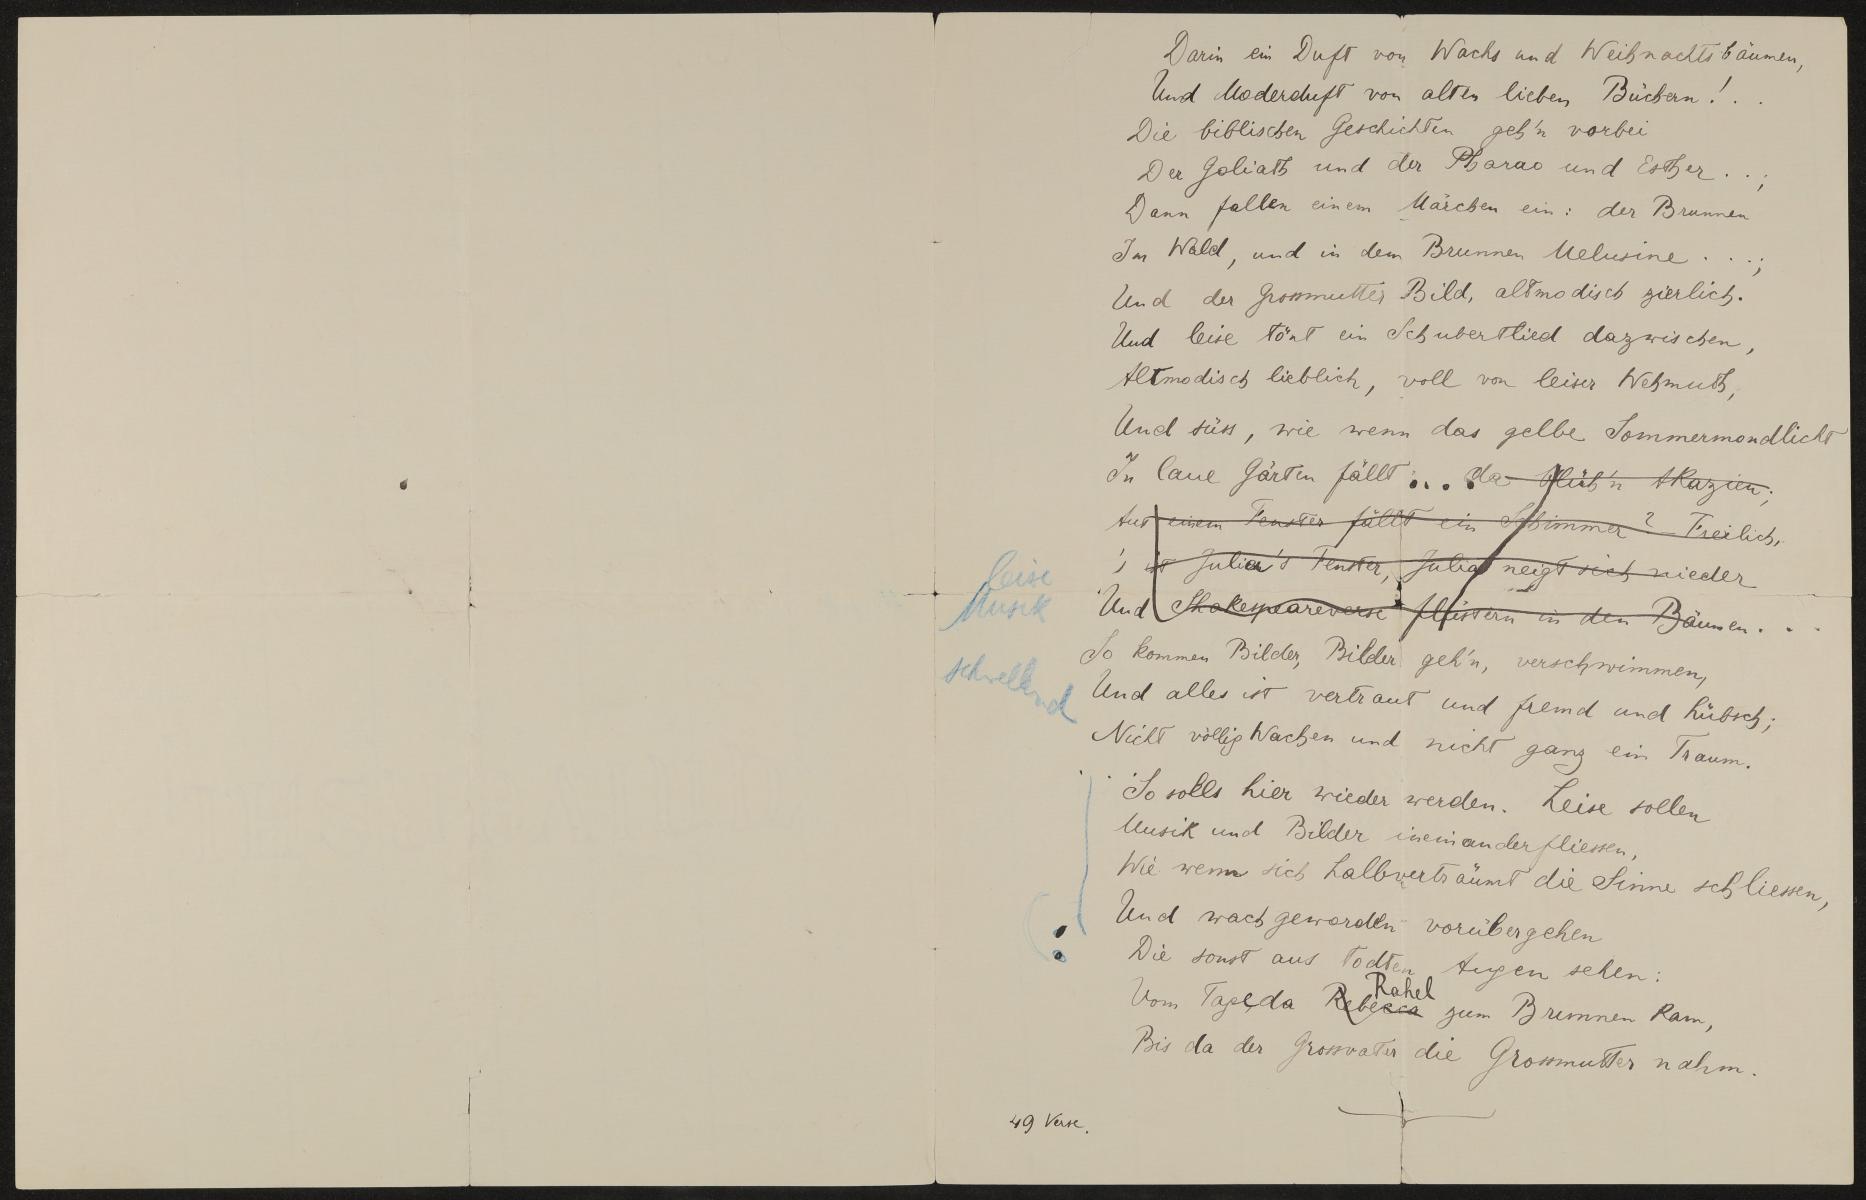 Darin ein Duft von Wachs und Weihnachtsbäumen,
Und Moderduft von alten lieben Büchern! . .
Die biblischen Geschichten geh'n vorbei
Der Goliath und der Pharao und Esther . . ;
Dann fallen einem Märchen ein: der Brunnen
Im Wald, und in dem Brunnen Melusine . . . ;
Und der Grossmutter Bild, altmodisch zierlich.
Und leise tönt ein Schubertlied dazwischen,
Altmodisch lieblich, voll von leiser Wehmuth,
Und süss, wie wenn das gelbe Sommermondlicht
In laue Gärten fällt . . . da blüh'n Akazien;
Aus einem Fenster fällt ein Schimmer? Freilich,
's ist Julia's Fenster, Julia neigt sich nieder
Und Shakespeareverse flüstern in den Bäumen . . .
leise
Musik
So kommen Bilder, Bilder geh'n, verschwimmen,
schwellend
Und alles ist vertraut und fremd und hübsch;
Nicht völlig Wachen und nicht ganz ein Traum.
So solls hier wieder werden. Leise sollen
Musik und Bilder ineinanderfliessen,
Wie wenn sich halbverträumt die Sinne schliessen,
Und wach geworden vorübergehen
Die sonst aus todten Augen sehen:
Vom Tage, da Rebecca Rahel zum Brunnen kam,
Bis da der Grossvater die Grossmutter nahm.
49 Verse.